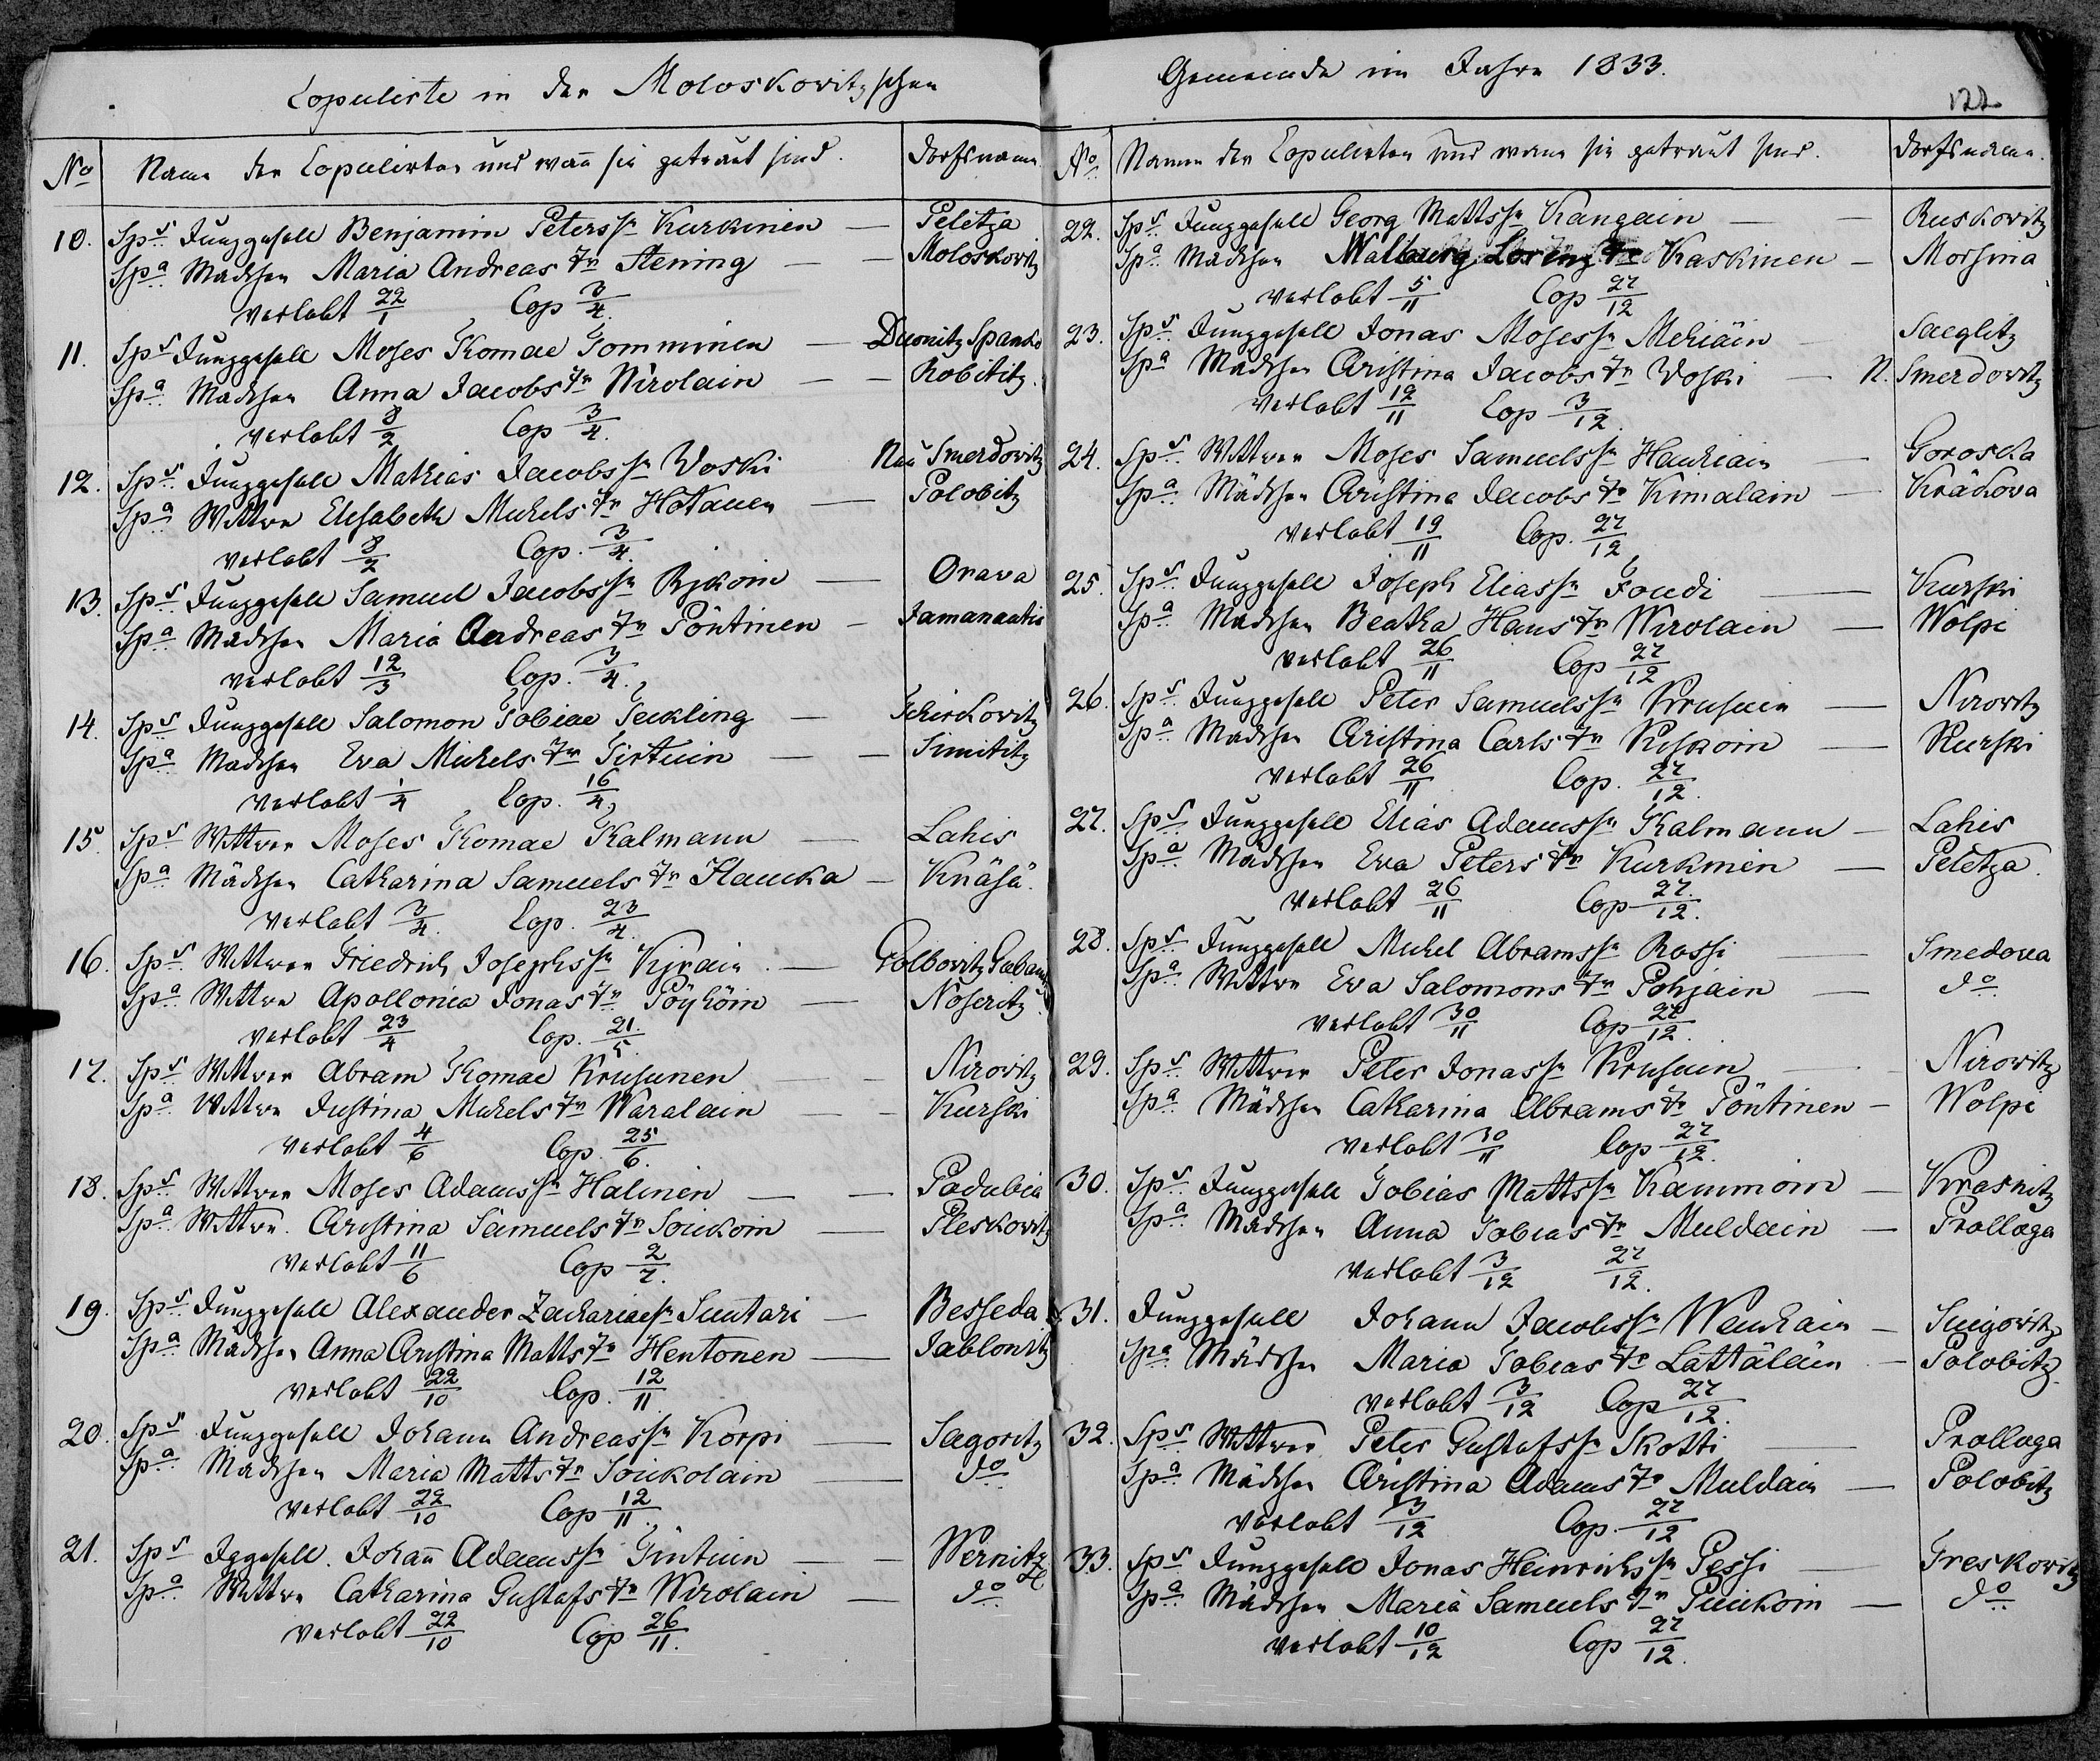 Copulirte in der Moloskovitzschen
No Name der Copulirten und wañ sie getraut sind. Dorfsname.
10. Sps Junggesell Benjamin Peterssn Kurkinen — Peletza
Spa Mädchen Maria Andreas Tr Stening — Moloskovitz
verlobt 22/1 Cop 3/4.
11. Sps Junggesell Moses Thomae Tomminen — Dusnitz Spanko
Spa Mädchen Anna Jacobs Tr Wirolain — Robititz.
verlobt 8/2 Cop 3/4.
12. Sps Junggesell Mathias Jacobssn Woski Neu Smerdovitz
Spa Wittwe Elisabeth Michels Tr Hotanen — Polobitz
verlobt 8/2 Cop. 3/4.
13. Sps Junggesell Samuel Jacobssn Rjkoin — Orava
Spa Mädchen Maria Andreas Tr Pöntinen — Jamanaatis
verlobt 12/3 Cop. 3/4.
14. Sps Junggesell Salomon Tobiae Teckling — Tchirkovitz
Spa Mädchen Eva Michels Tr Tirtuin — Simititz
verlobt 1/4 Cop. 16/4.
15. Sps Wittwer Moses Thomae Thalmann — Lahis
Spa Mädchen Catharina Samuels Tr Hauka — Knäsä.
verlobt 3/4. Cop. 23/4.
16. Sps Wittwer Friedrich Josephssn Kjrain — Golbovitz
Spa Wittwe Apollonia Jonas Tr Pöyhöin — Noseritz
verlobt 23/4 Cop. 21/5.
17. Sps Wittwer Abram Thomae Krusunen — Nirovitz
Spa Wittwe Justina Michels Tr Waralain — Kurski
verlobt 4/6 Cop. 25/6.
18. Sps Wittwer Moses Adamssn Halinen — Padubia
Spa Wittwe. Christina Samuels Tr Soikoin — Pleskovitz
verlobt 11/6 Cop 2/7.
19. Sps Junggesell Alexander Zachariaesn Suutari — Besseda
Spa Mädchen Anna Christina Matts Tr Hentonen — Jablonitz
verlobt 22/10 Cop. 12/11
20. Sps Junggesell Johann Andreassn Korpi — Sagoritz
Spa Mädchen Maria Matts Tr Soikolain — do
verlobt 22/10 Cop 12/11.
21. Sps Jggesell. Johañ Adamssn Tintuin — Wernitz
Spa Wittwe Catharina Gustafs Tr Wirolain — do
verlobt 22/10 Cop 26/11.
Gemeinde im Jahre 1833.
122
No Namen der Copulirten und wann sie getraut sind. Dorfsname.
22. Sps Junggesell Georg Mattssn Kangain — Ruskovitz
Spa Mädchen Walburg Lorenz Tr Kaskinen — Morsina
verlobt 5/11 Cop 27/12
23. Sps Junggesell Jonas Mosessn Mehiäin — Saeglitz
Spa Mädchen Christina Jacobs Tr Woski — N. Smerdovitz
verlobt 12/11 Cop 3/12.
24. Sps Wittwer Moses Samuelssn Haukiain — Goroska
Spa Mädchen Christina Jacobs Tr Kimalain — Kräkova
verlobt 19/11 Cop. 27/12
25. Sps Junggesell Joseph Eliassn Foudi — Kurski
Spa Mädchen Beatha Hans Tr Wirolain — Wolpi
verlobt 26/11 Cop 27/12
26. Sps Junggesell Peter Samuelssn Krusuin — Nirovitz
Spa Mädchen Christina Carls Tr Kiskoin — Kurski
verlobt 26/11 Cop. 27/12.
27. Sps Junggesell Elias Adamssn Thalmann — Lahis
Spa Mädchen Eva Peters Tr Kurkinen — Peletza.
verlobt 26/11 Cop 27/12.
28. Sps Junggesell Michel Abramssn Rossi — Smedova
Spa Wittwe Eva Salomons Tr Pohjain — do
verlobt 30/11 Cop 27/12.
29. Sps Wittwer Peter Jonassn Krusuin — Nirovitz
Spa Mädchen Catharina Abrams Tr Pöntinen — Wolpi
verlobt 30/11 Cop 27/12.
30. Sps Junggesell Tobias Mattssn Kaumoin — Krasnitz
Spa Mädchen Anna Tobias Tr Muldain — Prollaga
verlobt 3/12 27/12.
31. Junggesell Johann Jacobssn Weuhain — Snigovitz
Spa Mädchen Maria Tobias Tr Lättäläin — Polobitz
verlobt 3/12 Cop 27/12.
32. Sps Wittwer Peter Gustafssn Skotti — Prollaga
Spa Mädchen Christina Adams Tr Muldain — Polobitz
verlobt 3/12 Cop. 27/12
33. Sps Junggesell Jonas Heinrichssn Pessi — Greskovitz
Spa Mädchen Maria Samuels Tr Puukoin — do
verlobt 10/12 Cop 27/12.